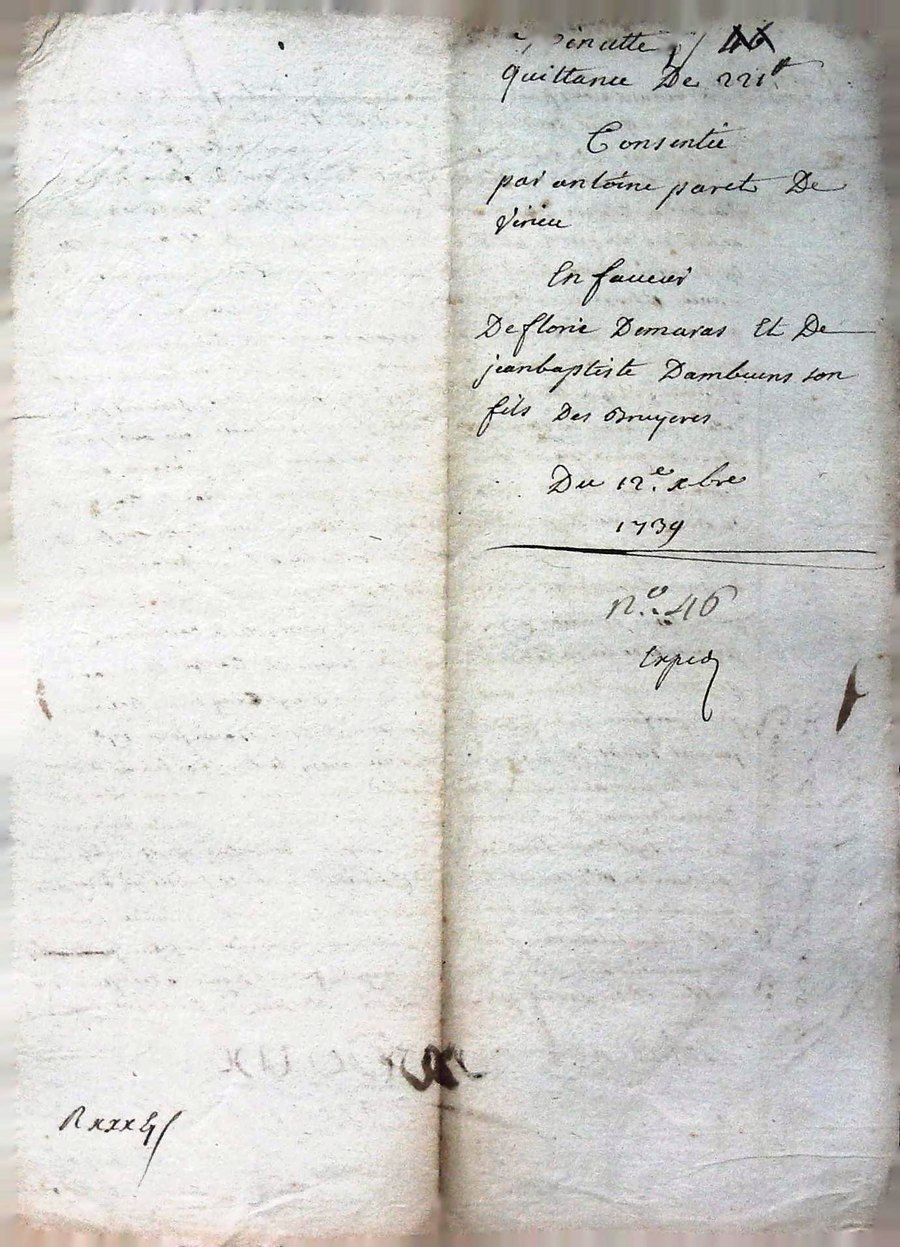 quittance De 221#
Consentie
par antoine paret De
virieu
En faveur
De florie Demaras Et De
jeanbaptiste Dambuens son
fils Des Bruyeres
Du 12.e xbre
1739
n.o 46
Exped